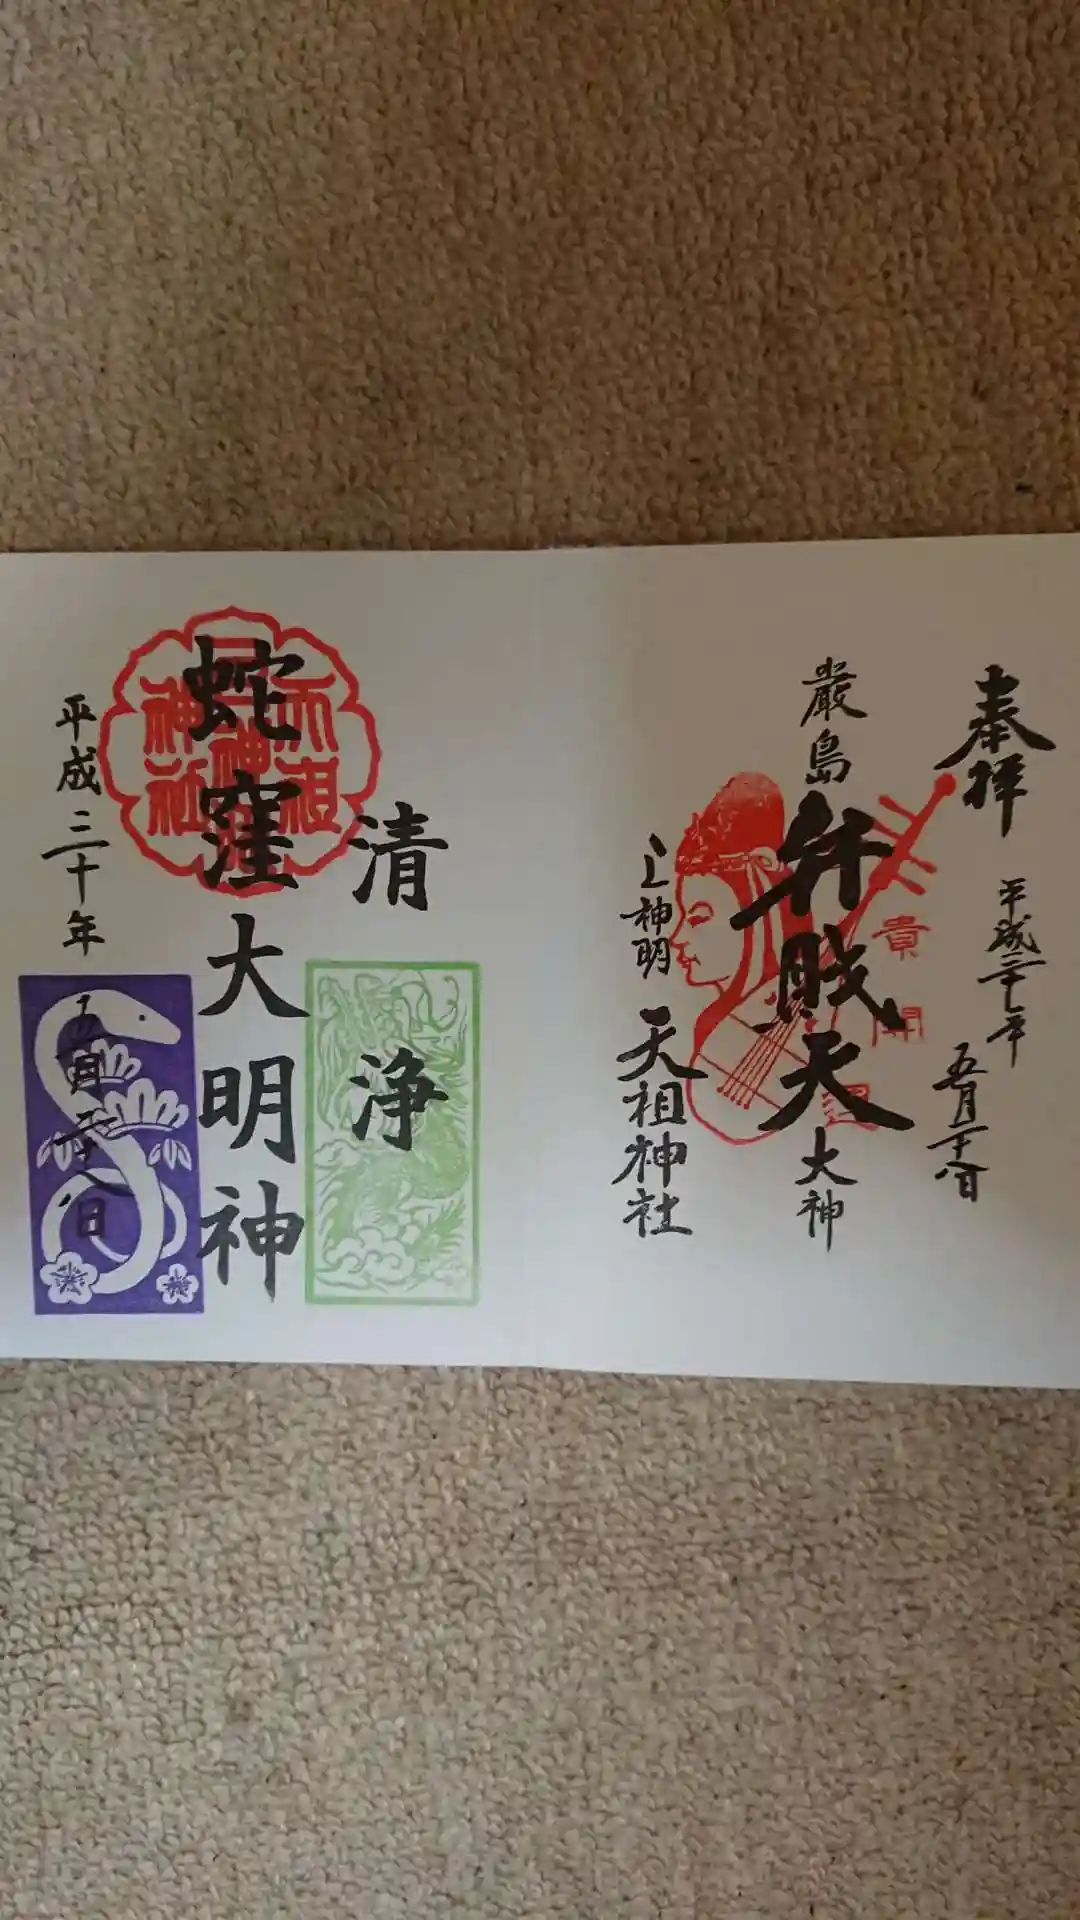 奉拝
平成三十年
五月二十八日
厳島
弁財天
大神
貴
開
運
上神明
天祖神社
清
浄
蛇窪大明神
天祖
神社
平成三十年
五月二十八日